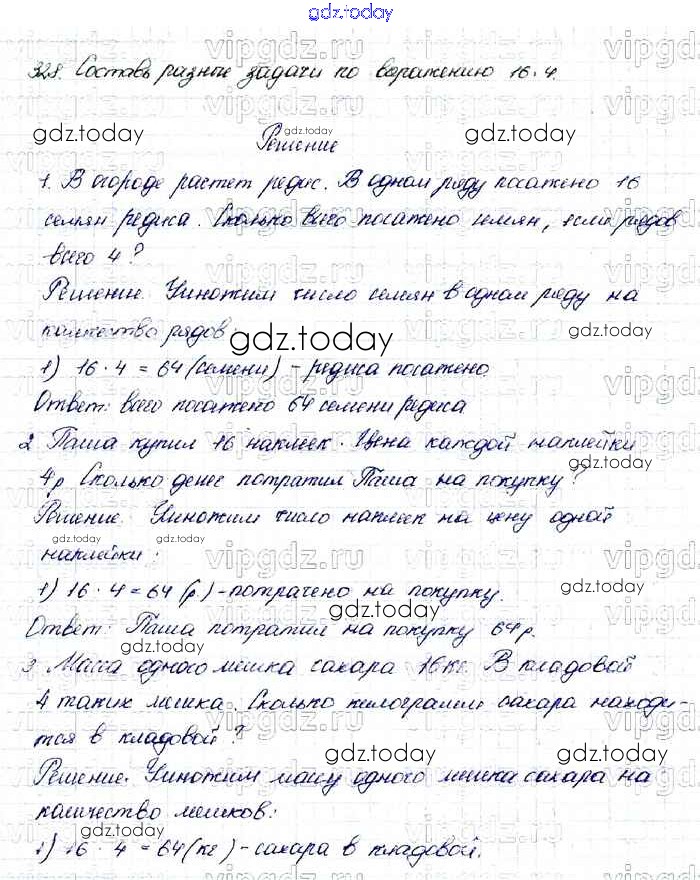 gdz.today
328. Составь разные задачи по выражению 16·4.
Решение
1. В огороде растет редис. В одном ряду посажено 16
семян редиса. Сколько всего посажено семян, если рядов
всего 4?
Решение. Умножим число семян в одном ряду на
количество рядов
1) 16 · 4 = 64 (семени) - редиса посажено
Ответ: всего посажено 64 семени редиса
2 Паша купил 16 наклеек. Цена каждой наклейки
4р Сколько денег потратил Паша на покупку?
Решение. Умножим число наклеек на цену одной
наклейки:
1) 16 · 4 = 64 (р) - потрачено на покупку.
Ответ: Паша потратил на покупку 64р.
3 Масса одного мешка сахара 16кг В кладовой
4 таких мешка. Сколько килограмм сахара находи-
тся в кладовой?
Решение. Умножим массу одного мешка сахара на
количество мешков:
1) 16 · 4 = 64 (кг) - сахара в кладовой.